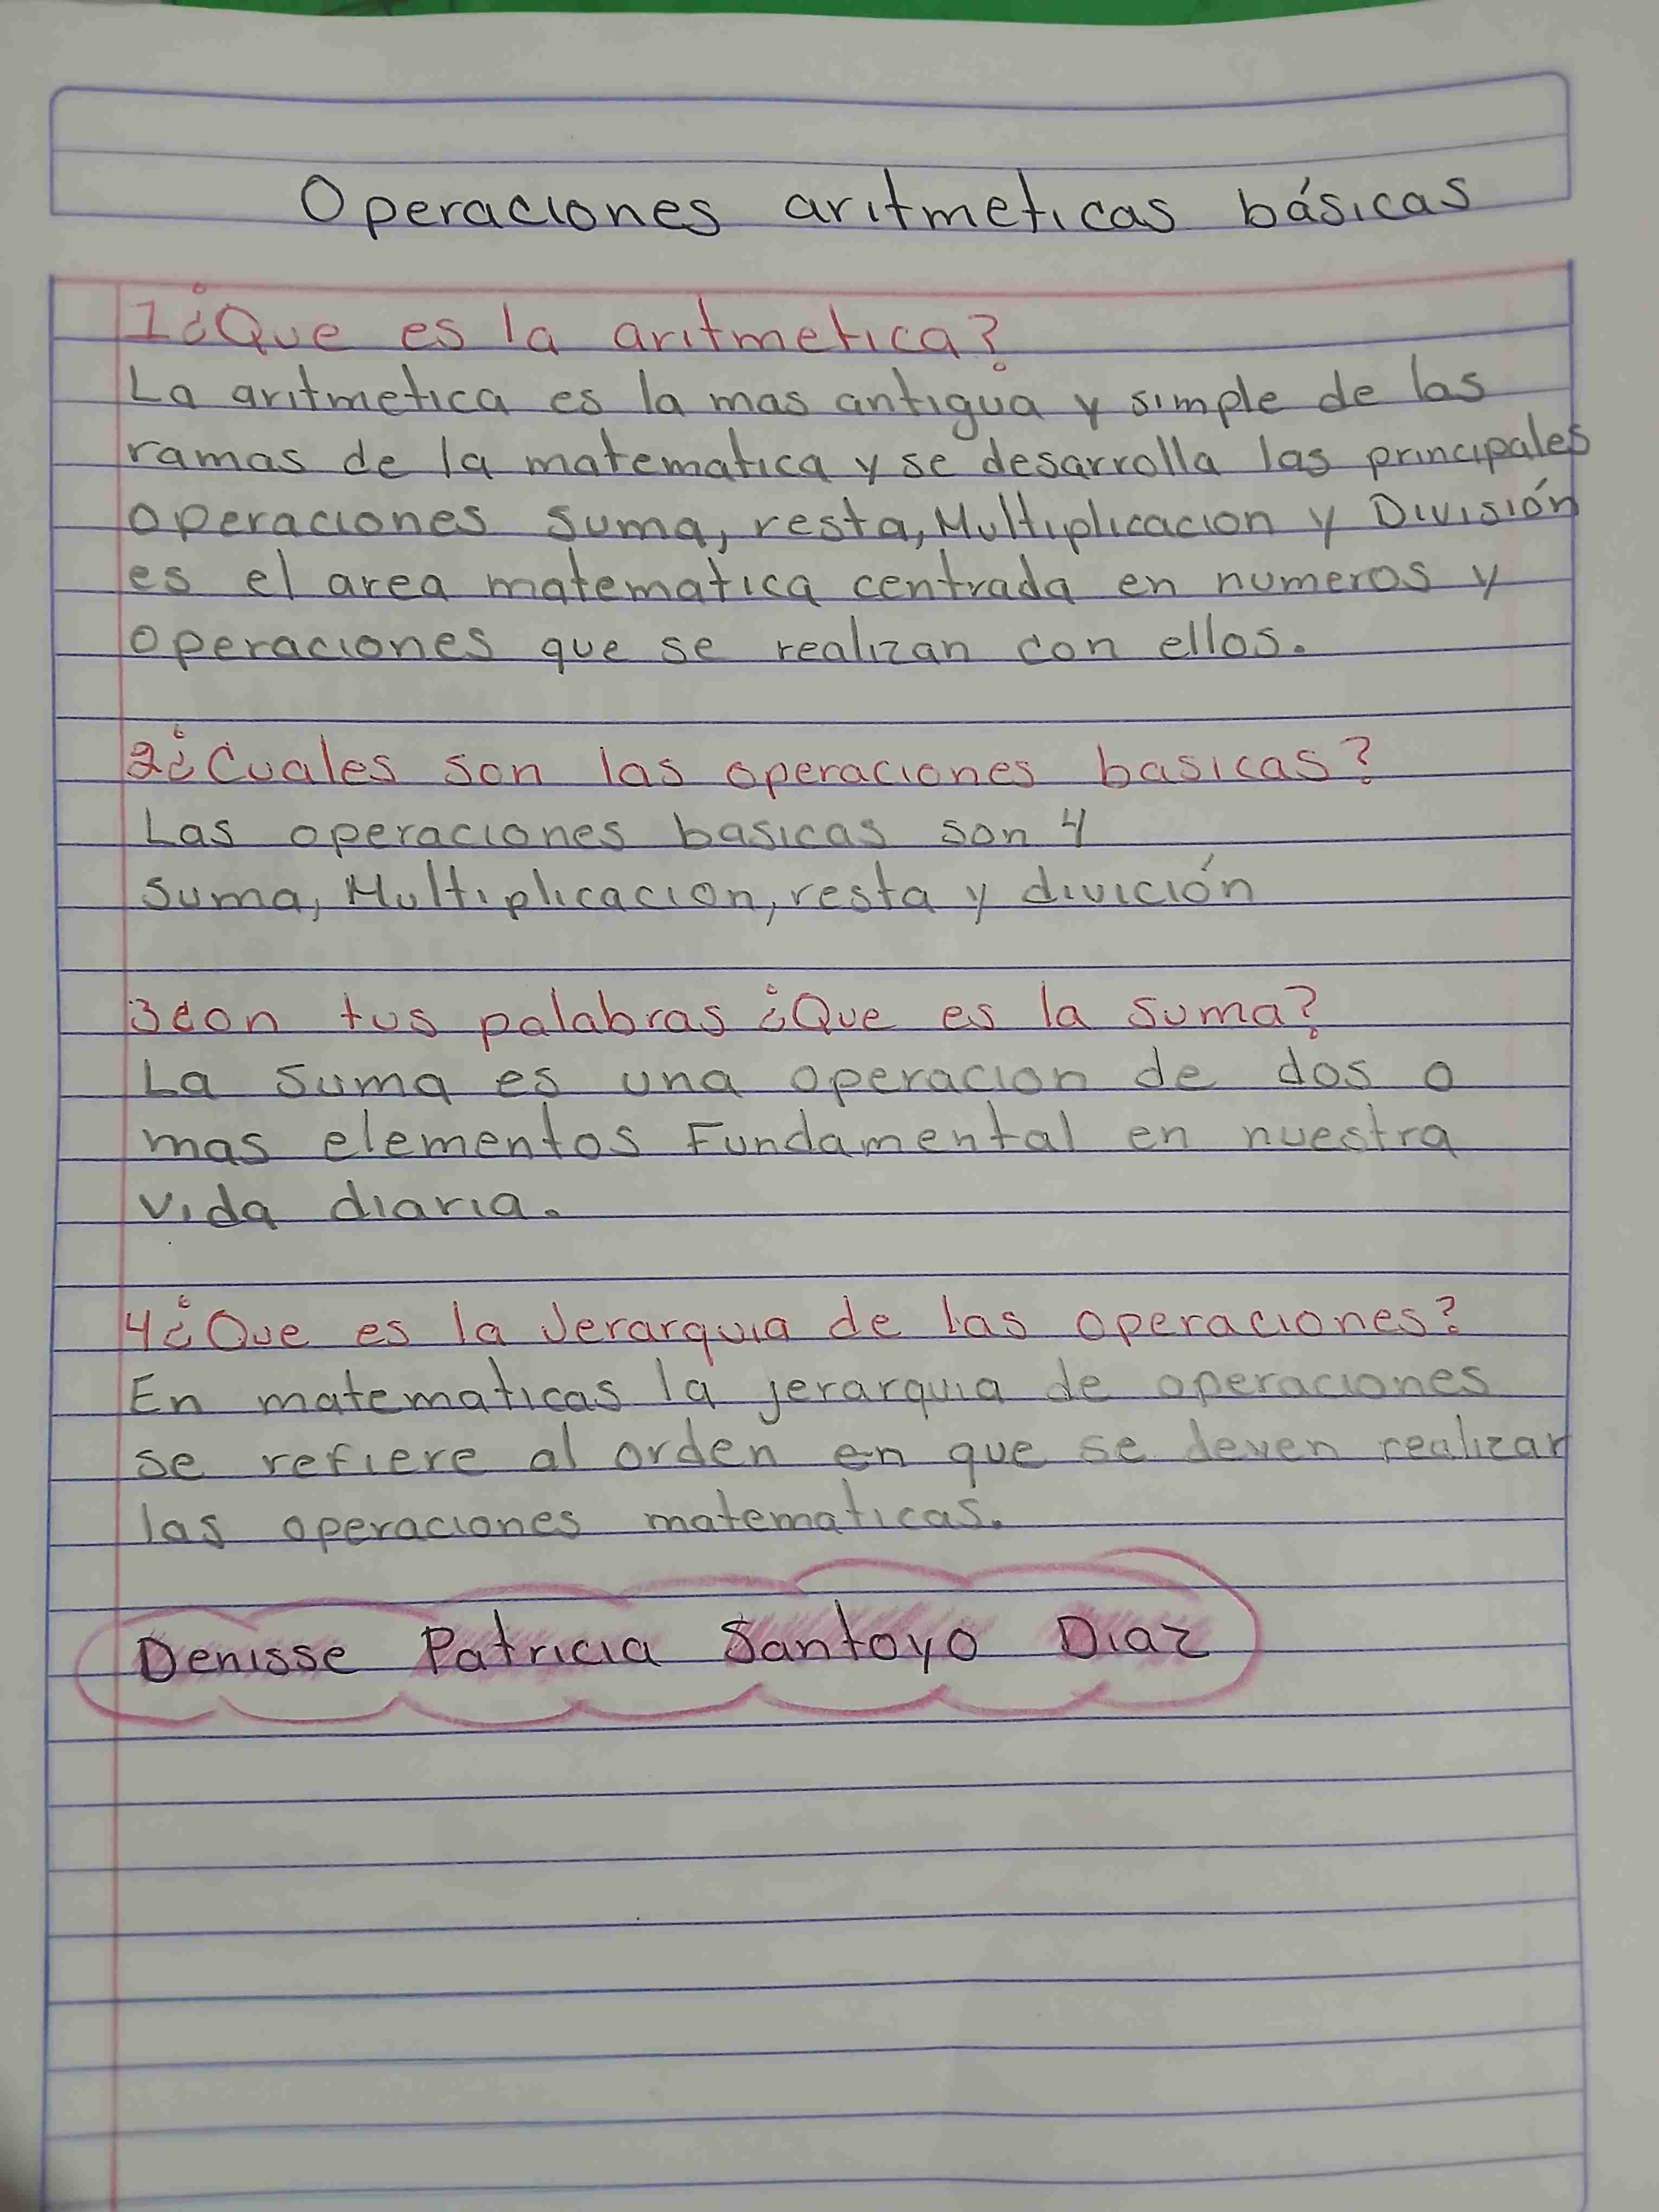 Operaciones aritmeticas básicas
1¿Que es la aritmetica?
La aritmetica es la mas antigua y simple de las
ramas de la matematica y se desarrolla las principales
operaciones suma, resta, Multiplicacion y División
es el area matematica centrada en numeros y
operaciones que se realizan con ellos.
2¿Cuales son las operaciones basicas?
Las operaciones basicas son 4
suma, Multiplicacion, resta y divición
3con tus palabras ¿Que es la suma?
La suma es una operacion de dos o
mas elementos Fundamental en nuestra
vida diaria.
4¿Que es la Jerarquia de las operaciones?
En matematicas la jerarquia de operaciones
se refiere al orden en que se deven realizar
las operaciones matematicas.
Denisse Patricia Santoyo Diaz